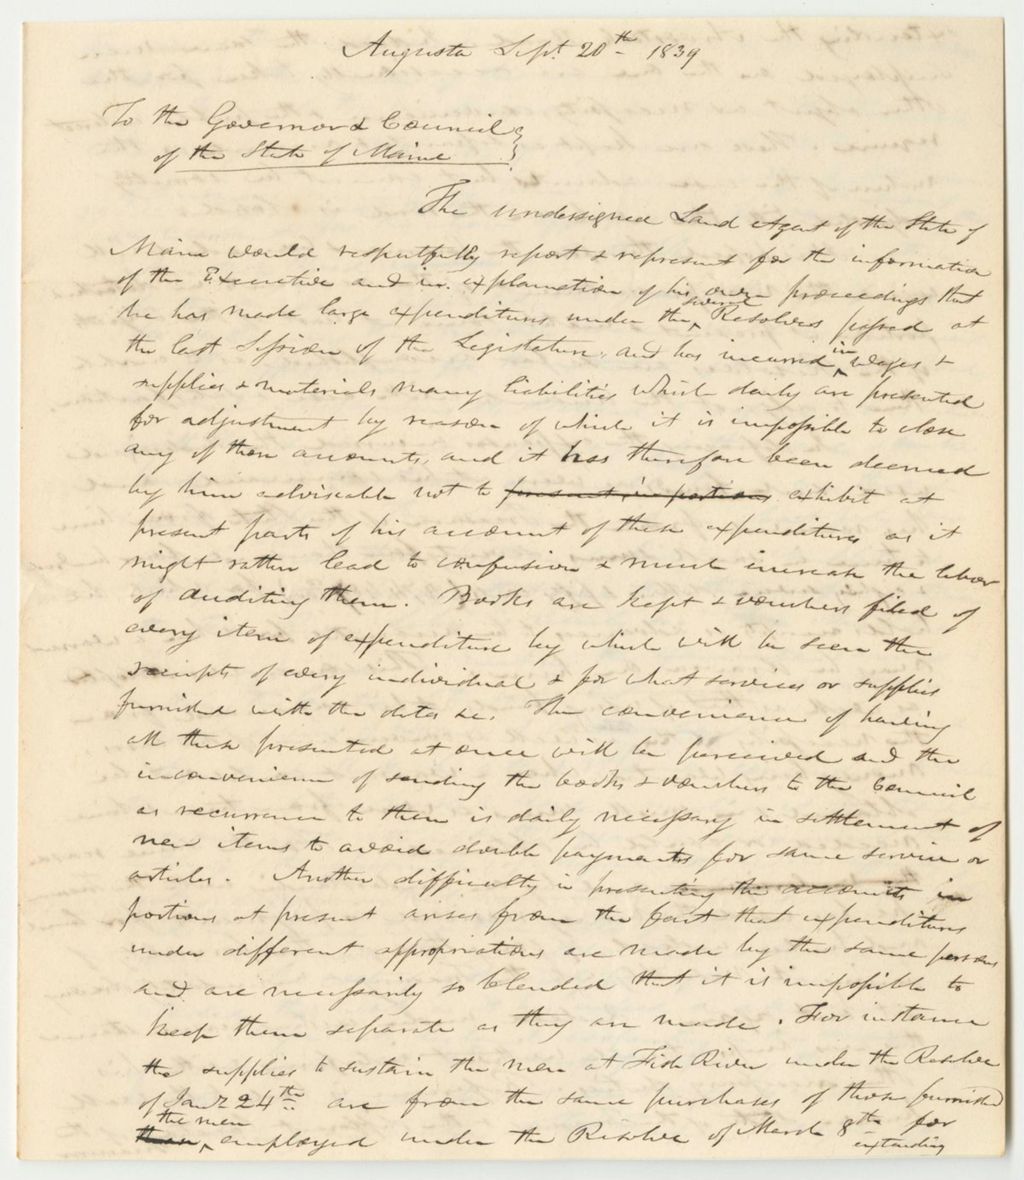 Augusta Sept. 20th 1839
To the Governor & Council
of the State of Maine
The undersigned Land Agent of the State of
Maine would respectfully report & represent for the information
of the Executive and in explanation of his own proceedings that
he has made large expenditures under the several Resolves passed at
the last Session of the Legislature, and has incurred in wages &
supplies & materials many liabilities which daily are presented
for adjustment by reason of which it is impossible to close
any of those accounts, and it has therefore been deemed
by him adviseable not to present in portions exhibit at
present parts of his account of these expenditures as it
might rather lead to confusion & much increase the labor
of auditing them. Books are kept & vouchers filed of
every item of expenditure by which will be seen the
receipts of every individual & for what services or supplies
furnished with the dates &c. The convenience of having
all these presented at once will be perceived and the
inconvenience of sending the books & vouchers to the Council
as recurrence to them is daily necessary in settlement of
new items to avoid double payments for same service or
articles. Another difficulty in presenting the accounts in
portions at present arises from the fact that expenditures
under different appropriations are made by the same persons
and are necessarily so blended that it is impossible to
keep them separate as they are made. For instance
the supplies to sustain the men at Fish River under the Resolve
of Jany 24th are from the same purchases of those furnished
the men
employed under the Resolve of March 8th for
extending